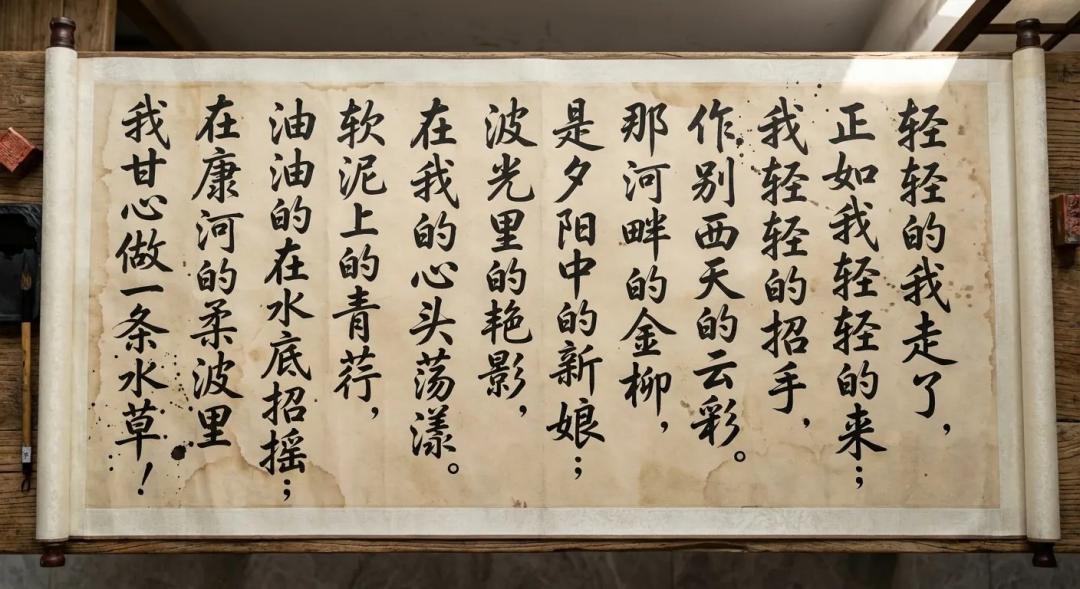 轻轻的我走了，
正如我轻轻的来；
我轻轻的招手，
作别西天的云彩。
那河畔的金柳，
是夕阳中的新娘；
波光里的艳影，
在我的心头荡漾。
软泥上的青荇，
油油的在水底招摇；
在康河的柔波里
我甘心做一条水草！